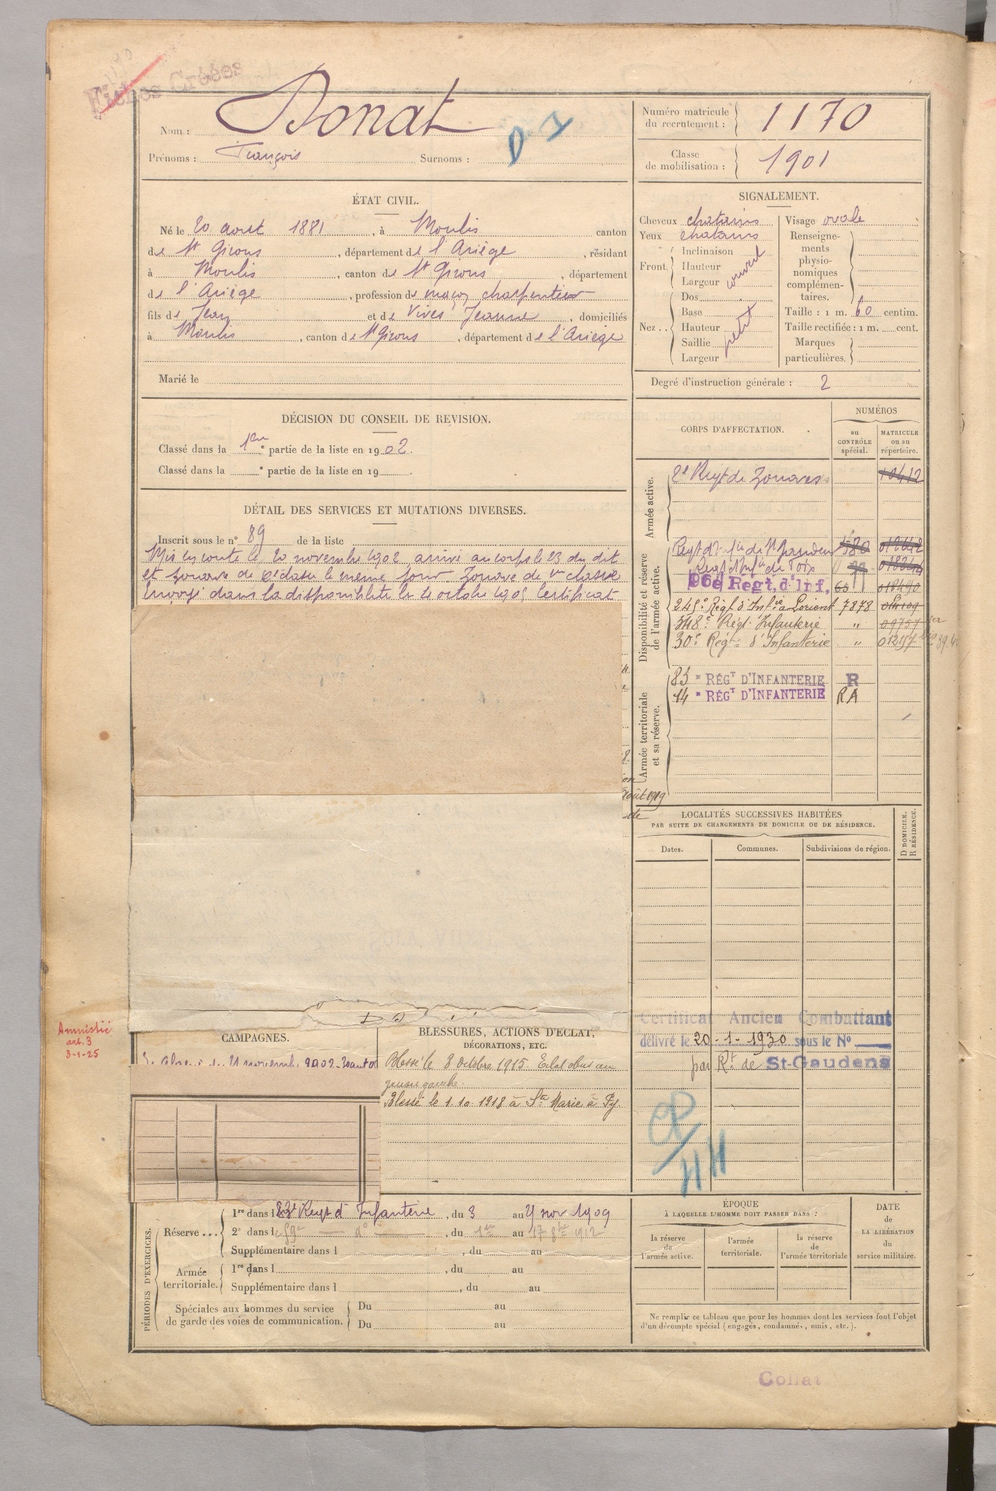 Fiches Créées
Nom : Donat
Prénoms : François Surnoms :
Numéro matricule du recrutement : 1170
Classe de mobilisation : 1901
ÉTAT CIVIL.
Né le 20 aout 1881, à Moulis canton
de St Girons, département de l'Ariège, résidant
à Moulis, canton de St Girons, département
de l'Ariège, profession de maçon charpentier
fils de Jean et de Vives Jeanne, domiciliés
à Moulis, canton de St Girons, département de l'Ariège
Marié le
SIGNALEMENT.
Cheveux chatains
Yeux chatains
Front. Inclinaison
Hauteur
Largeur
couvert
Nez.. Dos
Base
Hauteur
Saillie
Largeur
petit
Visage ovale
Renseignements physionomiques complémentaires.
Taille : 1 m. 60 centim.
Taille rectifiée : 1 m. cent.
Marques particulières.
Degré d'instruction générale : 2
DÉCISION DU CONSEIL DE REVISION.
Classé dans la 1ère partie de la liste en 1902.
Classé dans la e partie de la liste en 19
DÉTAIL DES SERVICES ET MUTATIONS DIVERSES.
Inscrit sous le n° 89 de la liste
Mis en route le 20 novembre 1902 arrivé au corps le 23 du dit
et zouave de 2e classe le même jour Zouave de 1e classe
Envoyé dans la disponibilité le octobre 1905 Certificat
CORPS D'AFFECTATION.
NUMÉROS
au CONTRÔLE spécial.
MATRICULE ou au répertoire.
Armée active.
2e Regt de Zouaves 10412
Disponibilité et réserve de l'armée active.
Regt d'Inf ie de St Gaudens
Regt d'Infie de Foix
96e Regt. d'Inf.
245e Régt d'Infie à Lorient 7878
348e Régt. Infanterie "
30e Régt d'Infanterie "
Armée territoriale et sa réserve.
83e RÉGT D'INFANTERIE R
14e RÉGT D'INFANTERIE RA
août 1919
LOCALITÉS SUCCESSIVES HABITÉES
PAR SUITE DE CHANGEMENTS DE DOMICILE OU DE RÉSIDENCE.
Dates. Communes. Subdivisions de région. D DOMICILE. R RÉSIDENCE.
Certificat Ancien Combattant
délivré le 20-1-1930 sous le N°
par Rt de St-Gaudens
Amnistié
art. 3
3-1-25
CAMPAGNES.
BLESSURES, ACTIONS D'ÉCLAT,
DÉCORATIONS, ETC.
Blessé le 8 Octobre 1915 Eclat obus au
genou gauche.
Blessé le 1.10.1918 à Ste Marie à Py.
PÉRIODES D'EXERCICES.
Réserve... 1re dans l 83e Regt d'Infanterie, du 3 au 21 nov 1909
2e dans l e 59e d°, du 1er au 17 8bre 1912
Supplémentaire dans l , du au
Armée territoriale. 1re dans l , du au
Supplémentaire dans l , du au
Spéciales aux hommes du service de garde des voies de communication. Du au
Du au
ÉPOQUE
À LAQUELLE L'HOMME DOIT PASSER DANS :
la réserve de l'armée active. l'armée territoriale. la réserve de l'armée territoriale
DATE de LA LIBÉRATION du service militaire.
Ne remplir ce tableau que pour les hommes dont les services font l'objet
d'un décompte spécial (engagés, condamnés, omis, etc.).
Collat